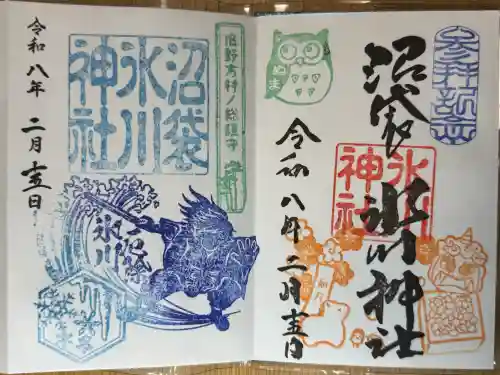 参拝記念
沼袋 氷川神社
氷川
神社
令和八年二月十五日
旧野方村ノ総鎮守
沼袋
氷川
神社
令和八年 二月十五日
沼袋
氷川